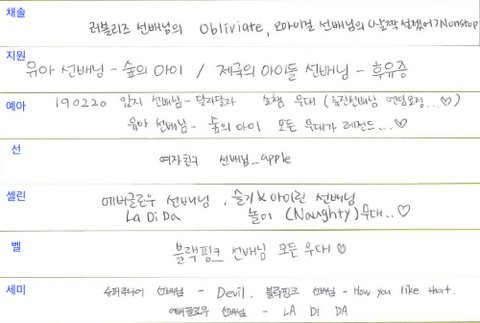 채솔
러블리즈 선배님의 Obliviate, 오마이걸 선배님의 (살짝 설렜어) Nonstop
지원
유아 선배님 - 숲의 아이 / 제국의 아이들 선배님 - 후유증
예아
190220 있지 선배님 - 달라달라 쇼챔 무대 (류진선배님 엔딩요정...♡)
유아 선배님 - 숲의 아이 모든 무대가 레전드...♡
선
여자친구 선배님_apple
셀린
에버글로우 선배님 , 슬기X아이린 선배님
LA Di Da 놀이 (Naughty) 무대..♡
벨
블랙핑크 선배님 모든 무대 ♡
세미
슈퍼주니어 선배님 - Devil. 블랙핑크 선배님 - How you like that.
에버글로우 선배님 - LA DI DA